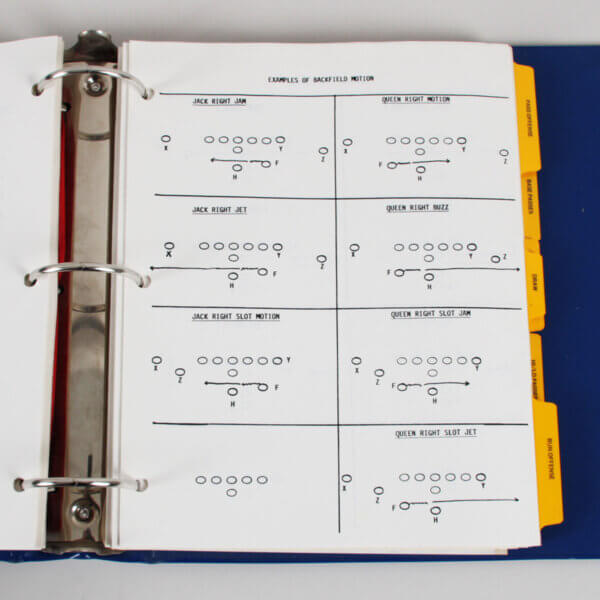 EXAMPLES OF BACKFIELD MOTION
JACK RIGHT JAM
X
Y
Z
F
H
QUEEN RIGHT MOTION
X
Y
Z
F
H
JACK RIGHT JET
X
Y
Z
F
H
QUEEN RIGHT BUZZ
X
Y
Z
F
H
JACK RIGHT SLOT MOTION
X
Y
Z
F
H
QUEEN RIGHT SLOT JAM
X
Y
Z
F
H
QUEEN RIGHT SLOT JET
X
Y
Z
F
H
PASS OFFENSE
BASE PASSES
DRAW
RUN OFFENSE